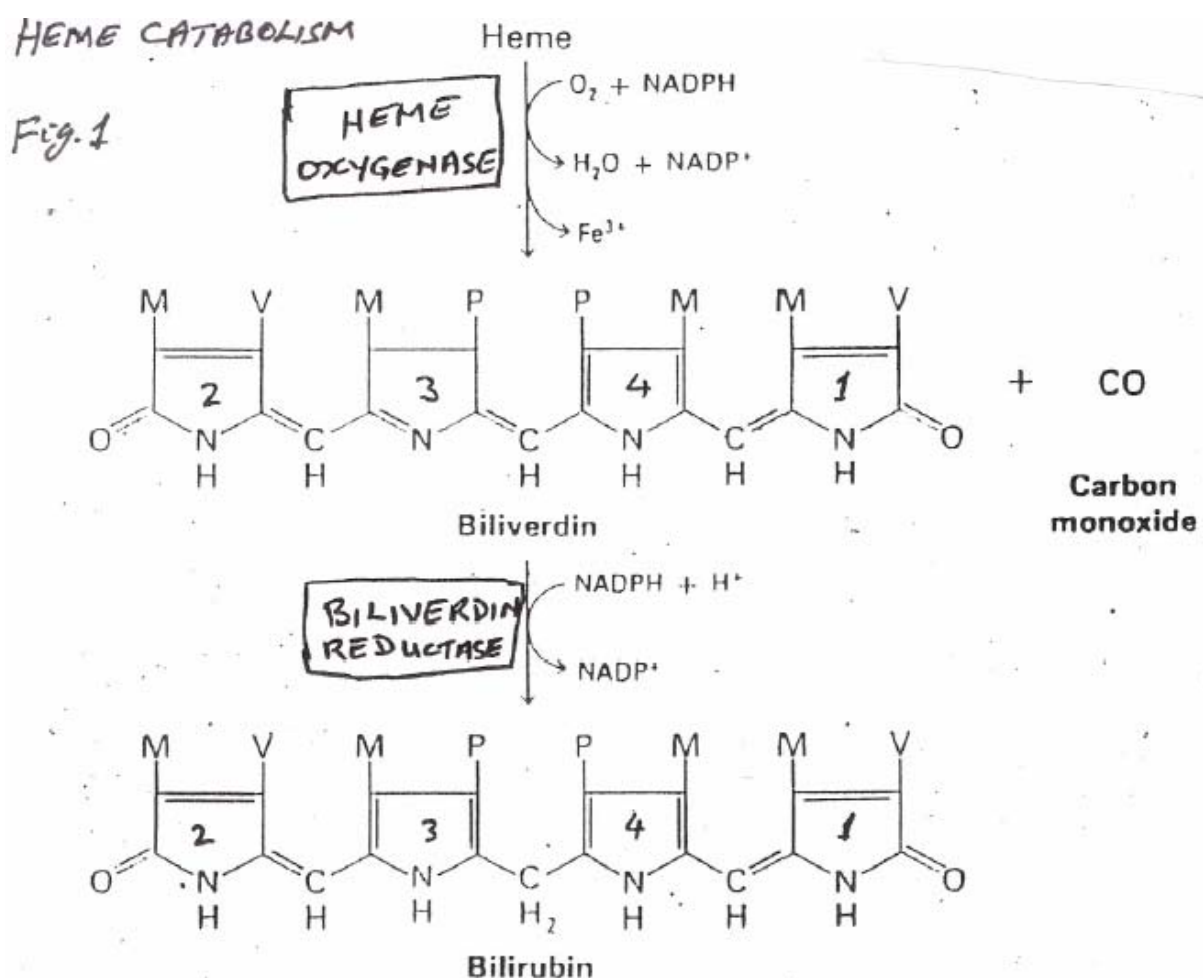 HEME CATABOLISM
Heme
Fig. 1
HEME
OXYGENASE
O₂ + NADPH
H₂O + NADP⁺
Fe³⁺
M V M P P M M V
2 3 4 1
+ CO
O N C N C N C N O
H H H H H H
Carbon
monoxide
Biliverdin
BILIVERDIN
REDUCTASE
NADPH + H⁺
NADP⁺
M V M P P M M V
2 3 4 1
O N C N C N C N O
H H H H₂ H H H
Bilirubin